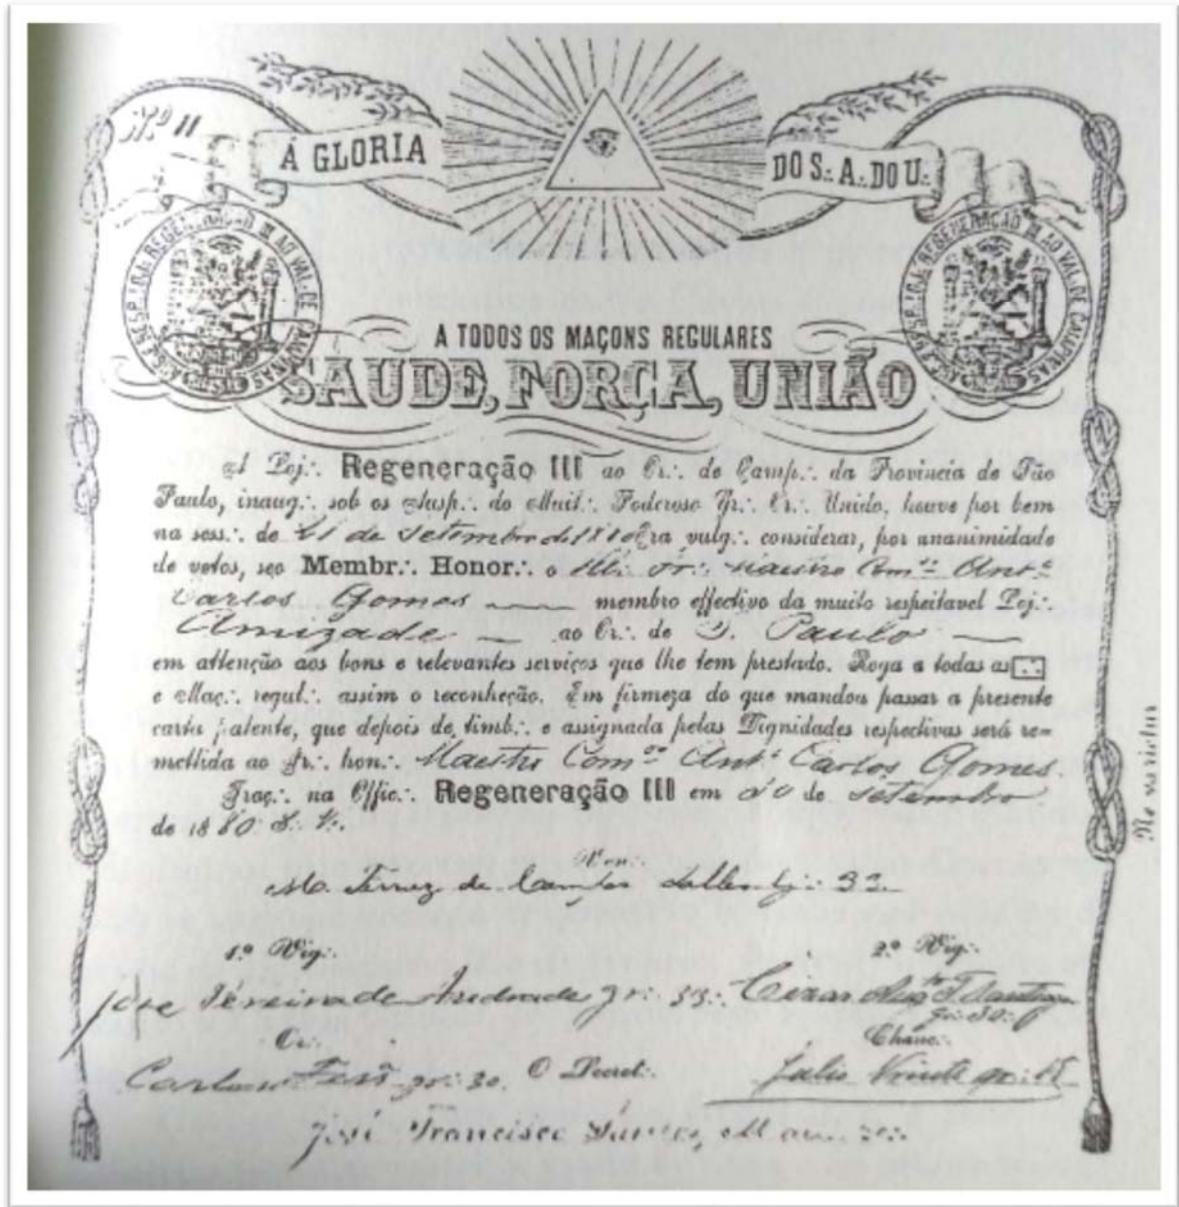 Nº 11
Á GLORIA
DO S.·. A.·. DO U.·.
REGENERAÇÃO III AO VAL.·. DE CAMPINAS
REGENERAÇÃO III AO VAL.·. DE CAMPINAS
A TODOS OS MAÇONS REGULARES
SAUDE, FORÇA, UNIÃO
A Loj.·. Regeneração III ao Or.·. de Camp.·. da Provincia de São
Paulo, inaug.·. sob os Ausp.·. do Muit.·. Poderoso Gr.·. Or.·. Unido, houve por bem
na sess.·. de 21 de Setembro de 1880 Era vulg.·. considerar, por unanimidade
de votos, seo Membr.·. Honor.·. o Ill.·. Ir.·. Maestro Com.ºr Ant.º
Carlos Gomes membro effectivo da muito respeitavel Loj.·.
Amizade ao Or.·. de S. Paulo
em attenção aos bons e relevantes serviços que lhe tem prestado. Roga a todas as
e Maç.·. regul.·. assim o reconheção. Em firmeza do que mandou passar a presente
carta patente, que depois de timb.·. e assignada pelas Dignidades respectivas será re=
mettida ao Ir.·. hon.·. Maestro Com.ºr Ant.º Carlos Gomes.
Traç.·. na Offic.·. Regeneração III em 30 de Setembro
de 1880 E.·. V.·.
Ven.·.
M. Ferraz de Campos Salles
1.º Vig.·.
2.º Vig.·.
José Pereira de Andrade gr.·. 33.·.
Cezar
gr.·. 30.·.
Or.·.
Chanc.·.
Carlos gr.·. 30.
O Secret.·.
Julio gr.·.
José Francisco
Ne varietur